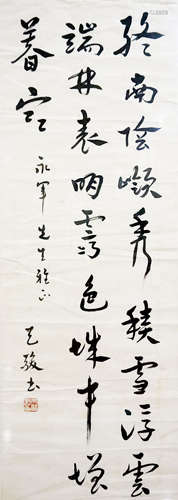 終南陰嶺秀積雪浮雲
端林表明霽色城中增
暮寒
永軍先生雅正
駿书